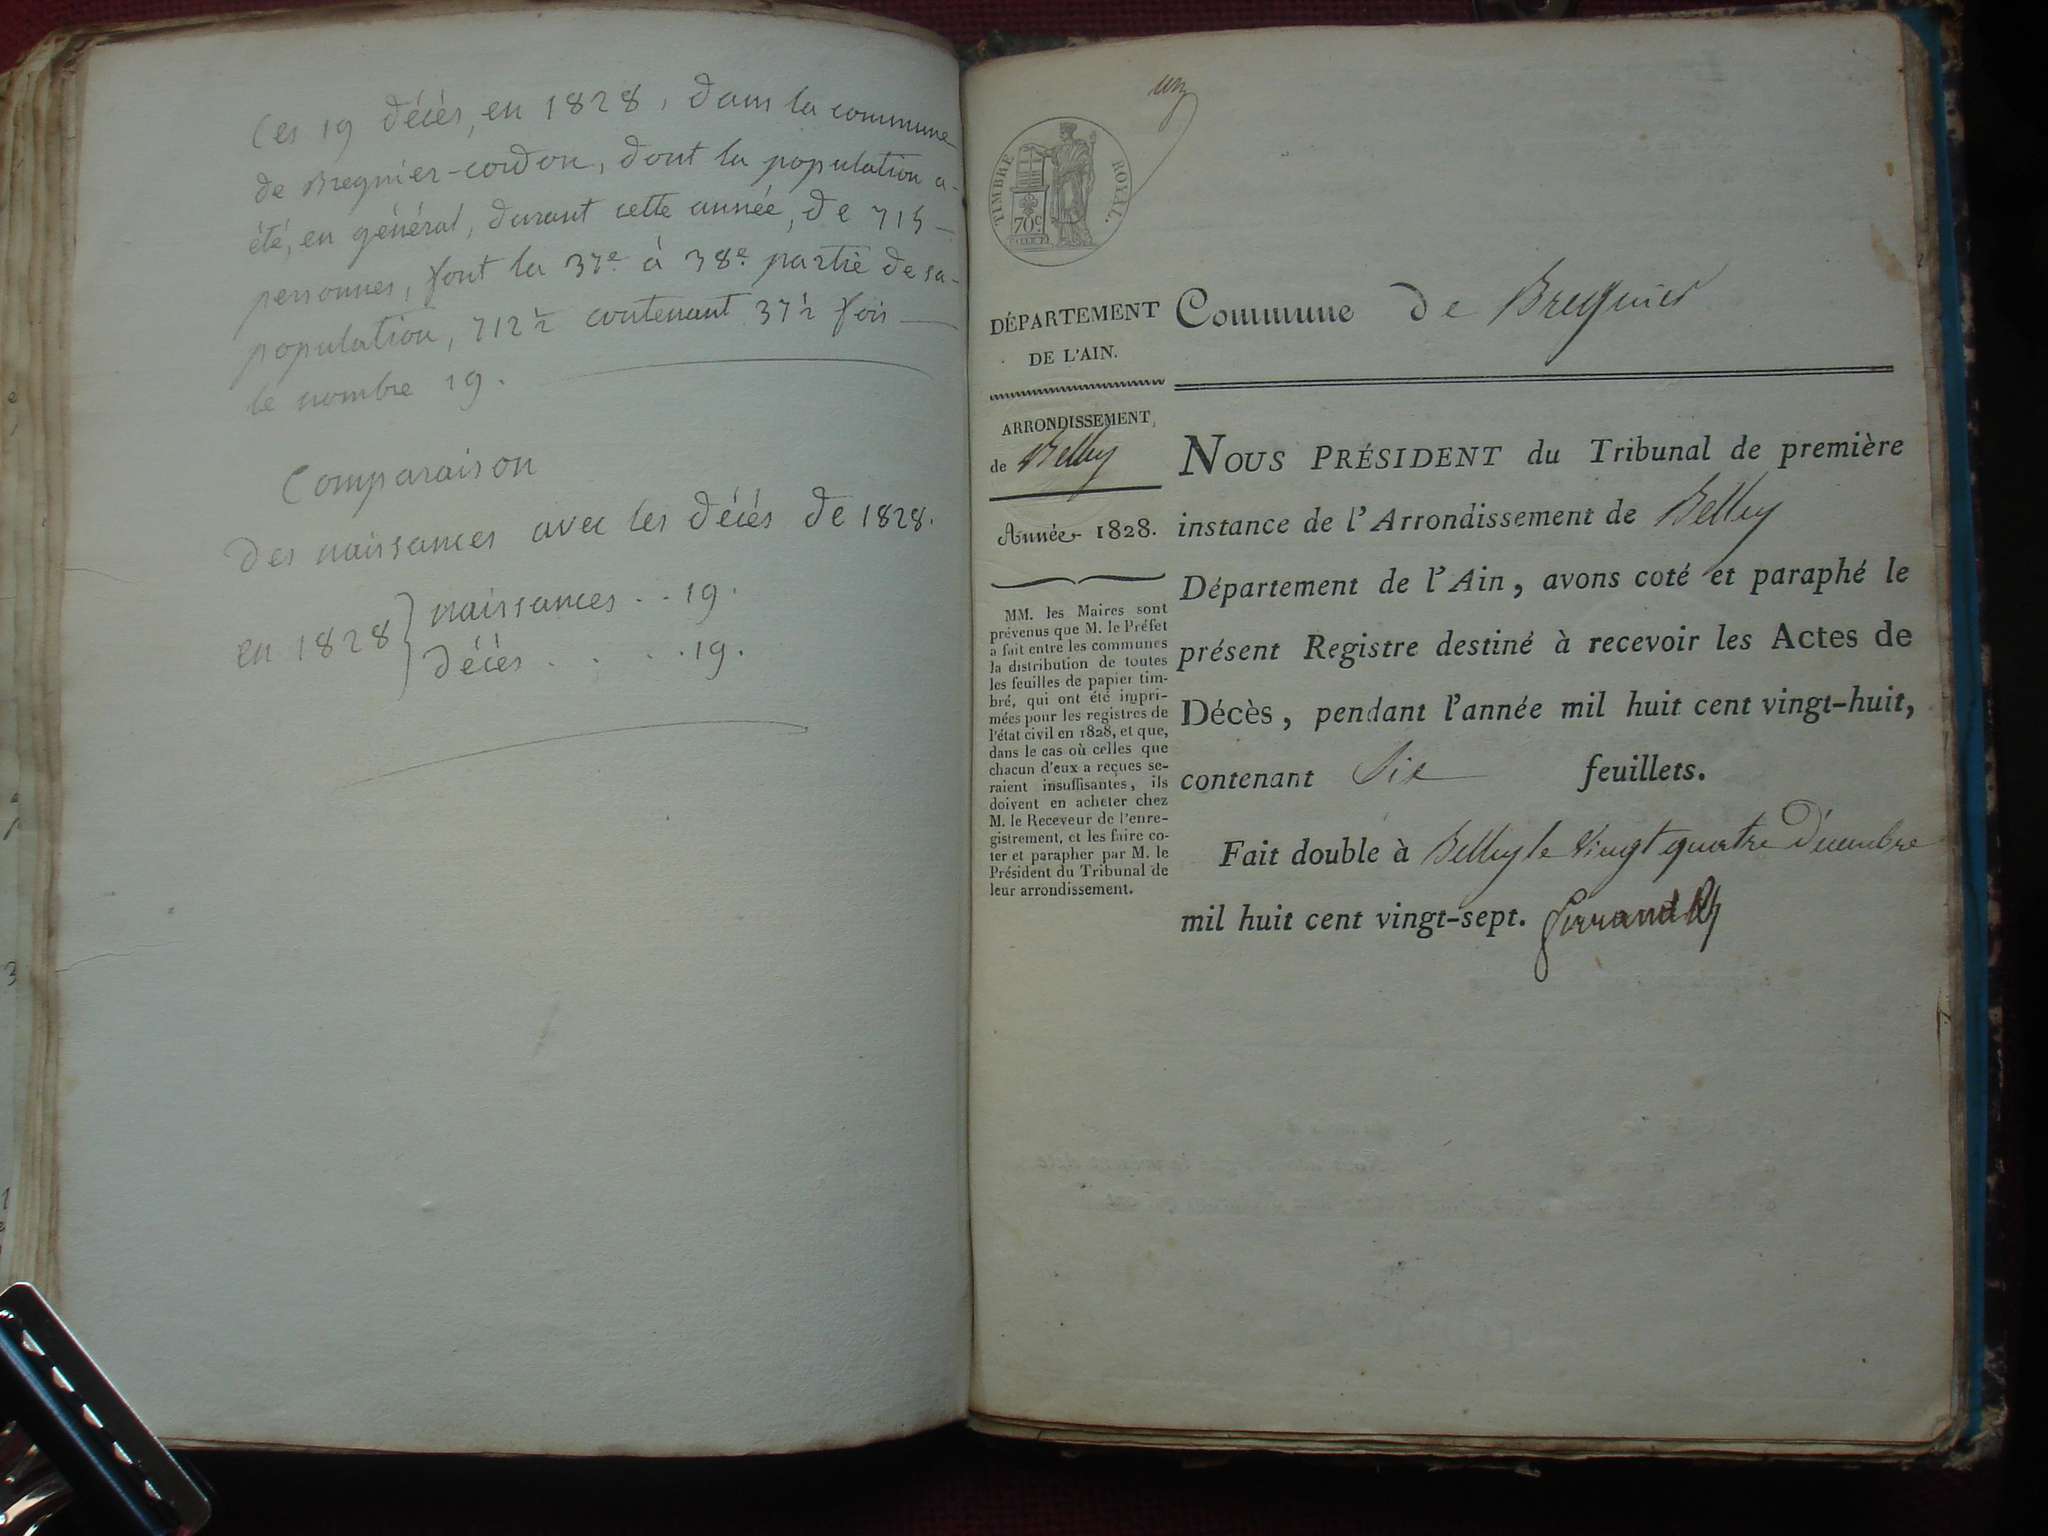 Ces 19 décès, en 1828, dans la commune
de Bregnier-cordon, dont la population a-
été, en général, durant cette année, de 715 —
personnes, font la 37e. à 38e. partie de sa-
population, 712½ contenant 37½ fois —
le nombre 19.
Comparaison
des naissances avec les décès de 1828.
en 1828 } naissances . . 19.
décès . . . . 19.
un
TIMBRE ROYAL.
70c.
DÉPARTEMENT
DE L'AIN.
Commune de Bregnier
ARRONDISSEMENT,
de Belley
Année 1828.
MM. les Maires sont
prévenus que M. le Préfet
a fait entre les communes
la distribution de toutes
les feuilles de papier tim-
bré, qui ont été impri-
mées pour les registres de
l'état civil en 1828, et que,
dans le cas où celles que
chacun d'eux a reçues se-
raient insuffisantes, ils
doivent en acheter chez
M. le Receveur de l'enre-
gistrement, et les faire co-
ter et parapher par M. le
Président du Tribunal de
leur arrondissement.
NOUS PRÉSIDENT du Tribunal de première
instance de l'Arrondissement de Belley
Département de l'Ain, avons coté et paraphé le
présent Registre destiné à recevoir les Actes de
Décès, pendant l'année mil huit cent vingt-huit,
contenant Six feuillets.
Fait double à Belley le vingt quatre Décembre
mil huit cent vingt-sept.